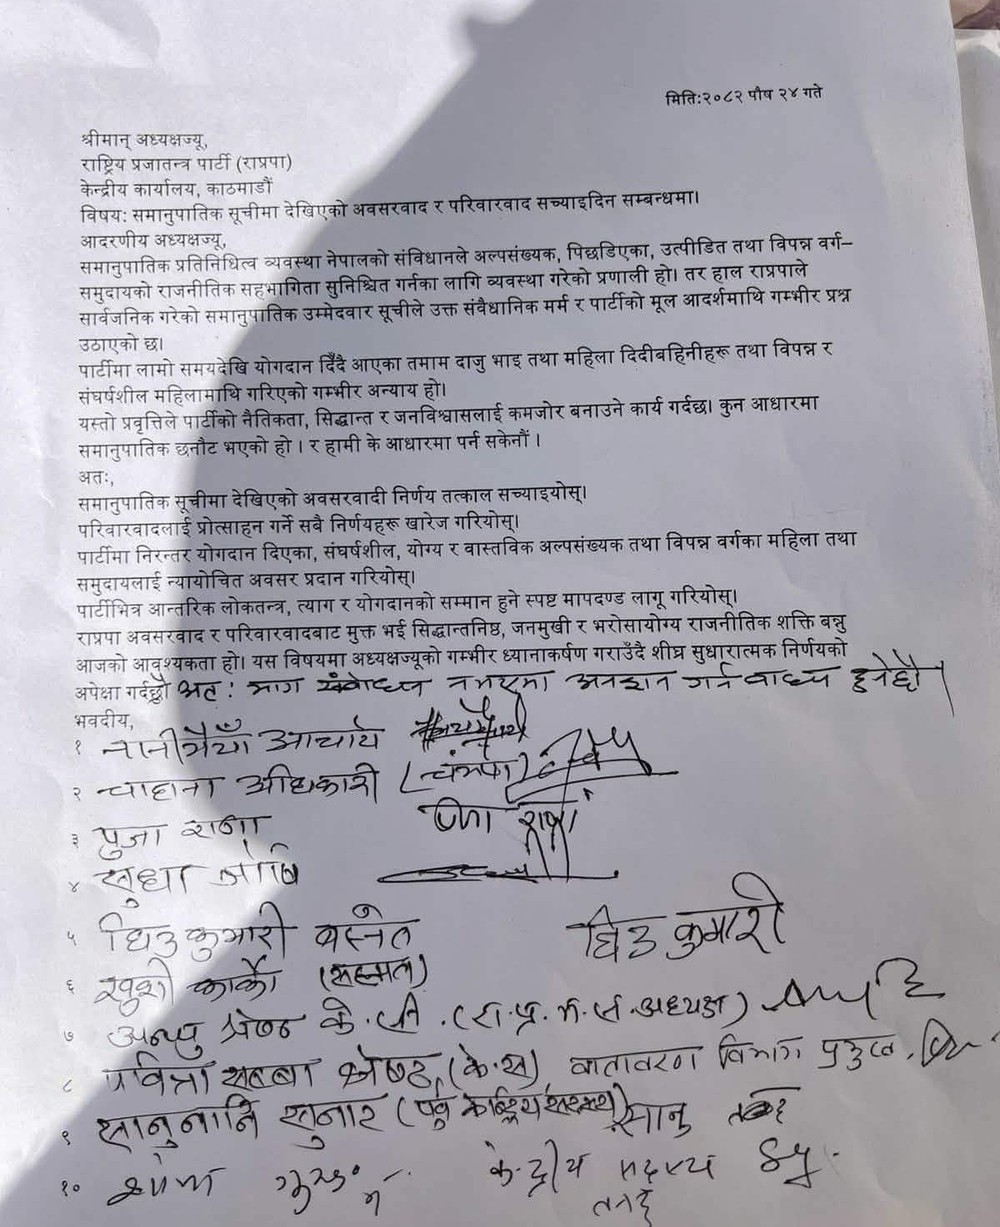 मितिः२०८२ पौष २४ गते
श्रीमान् अध्यक्षज्यू,
राष्ट्रिय प्रजातन्त्र पार्टी (राप्रपा)
केन्द्रीय कार्यालय, काठमाडौं
विषय: समानुपातिक सूचीमा देखिएको अवसरवाद र परिवारवाद सच्याइदिन सम्बन्धमा।
आदरणीय अध्यक्षज्यू,
समानुपातिक प्रतिनिधित्व व्यवस्था नेपालको संविधानले अल्पसंख्यक, पिछडिएका, उत्पीडित तथा विपन्न वर्ग–
समुदायको राजनीतिक सहभागिता सुनिश्चित गर्नका लागि व्यवस्था गरेको प्रणाली हो। तर हाल राप्रपाले
सार्वजनिक गरेको समानुपातिक उम्मेदवार सूचीले उक्त संवैधानिक मर्म र पार्टीको मूल आदर्शमाथि गम्भीर प्रश्न
उठाएको छ।
पार्टीमा लामो समयदेखि योगदान दिँदै आएका तमाम दाजु भाइ तथा महिला दिदीबहिनीहरू तथा विपन्न र
संघर्षशील महिलामाथि गरिएको गम्भीर अन्याय हो।
यस्तो प्रवृत्तिले पार्टीको नैतिकता, सिद्धान्त र जनविश्वासलाई कमजोर बनाउने कार्य गर्दछ। कुन आधारमा
समानुपातिक छनौट भएको हो । र हामी के आधारमा पर्न सकेनौं ।
अतः,
समानुपातिक सूचीमा देखिएको अवसरवादी निर्णय तत्काल सच्याइयोस्।
परिवारवादलाई प्रोत्साहन गर्ने सबै निर्णयहरू खारेज गरियोस्।
पार्टीमा निरन्तर योगदान दिएका, संघर्षशील, योग्य र वास्तविक अल्पसंख्यक तथा विपन्न वर्गका महिला तथा
समुदायलाई न्यायोचित अवसर प्रदान गरियोस्।
पार्टीभित्र आन्तरिक लोकतन्त्र, त्याग र योगदानको सम्मान हुने स्पष्ट मापदण्ड लागू गरियोस्।
राप्रपा अवसरवाद र परिवारवादबाट मुक्त भई सिद्धान्तनिष्ठ, जनमुखी र भरोसायोग्य राजनीतिक शक्ति बन्नु
आजको आवश्यकता हो। यस विषयमा अध्यक्षज्यूको गम्भीर ध्यानाकर्षण गराउँदै शीघ्र सुधारात्मक निर्णयको
अपेक्षा गर्दछौं अत: माग नभएमा अनशन गर्न वाध्य हुनेछौं
भवदीय,
१ नानीमैयाँ आचार्य
२ चाहाना अधिकारी (चम्पा)
३ पुजा राना
४ सुधा जोषि
५ घिउकुमारी बस्नेत घिउ कुमारी
६ खुशी कार्की
७ के.सी. (रा.प्र.म.सं.अध्यक्ष)
८ पवित्रा श्रेष्ठ (के.स) वातावरण विभाग प्रमुख
९ सानुनानि सुनार (पूर्व सानु
१० केन्द्रीय सदस्य